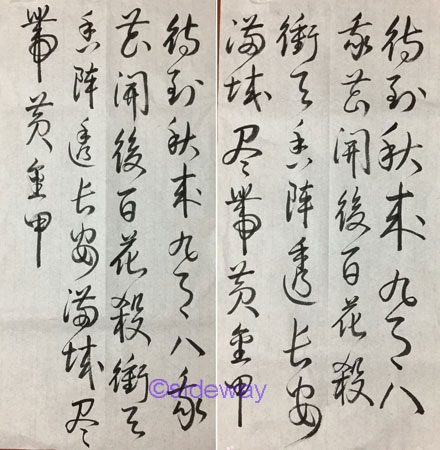 待到秋來九月八
我花開後百花殺
衝天香陣透長安
滿城尽帶黃金甲
待到秋來九月八我
花開後百花殺衝天
香陣透長安滿城尽
帶黃金甲
©sideway